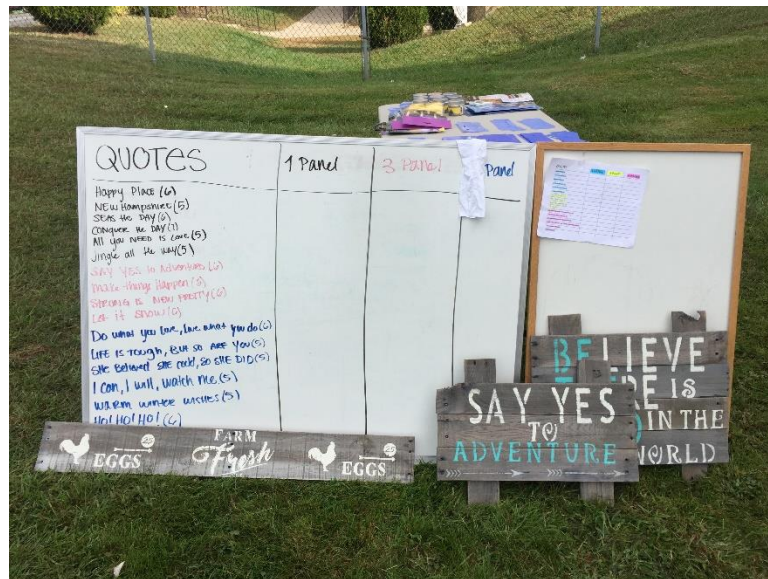 QUOTES
1 Panel
3 Panel
Panel
Happy Place (6)
New Hampshire (5)
SEAS the DAY (6)
CONQUER the DAY (7)
All you NEED is Love (5)
Jingle all the way (5)
SAY YES to Adventure (6)
Make things Happen (5)
STRONG is NEW PRETTY (6)
Let it SNOW (6)
Do what you love, love what you do (6)
LIFE is TOUGH, But so ARE YOU (5)
SHE Believed SHE could, So SHE DID (5)
I can, I will, watch me (5)
WARM WINTER WISHES (5)
HO! HO! HO! (6)
EGGS
25
FARM
Fresh
EGGS
25
SAY YES
TO
ADVENTURE
BELIEVE
RE IS
IN THE
WORLD